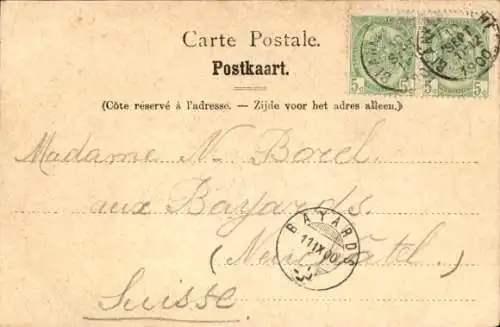 Carte Postale.
Postkaart.
(Côte réservé à l'adresse. — Zijde voor het adres alleen.)
Madame N. Borel.
aux Bayards.
(Neuchâtel.)
Suisse.
BAYARDS
11 IX 00
5 5
1900